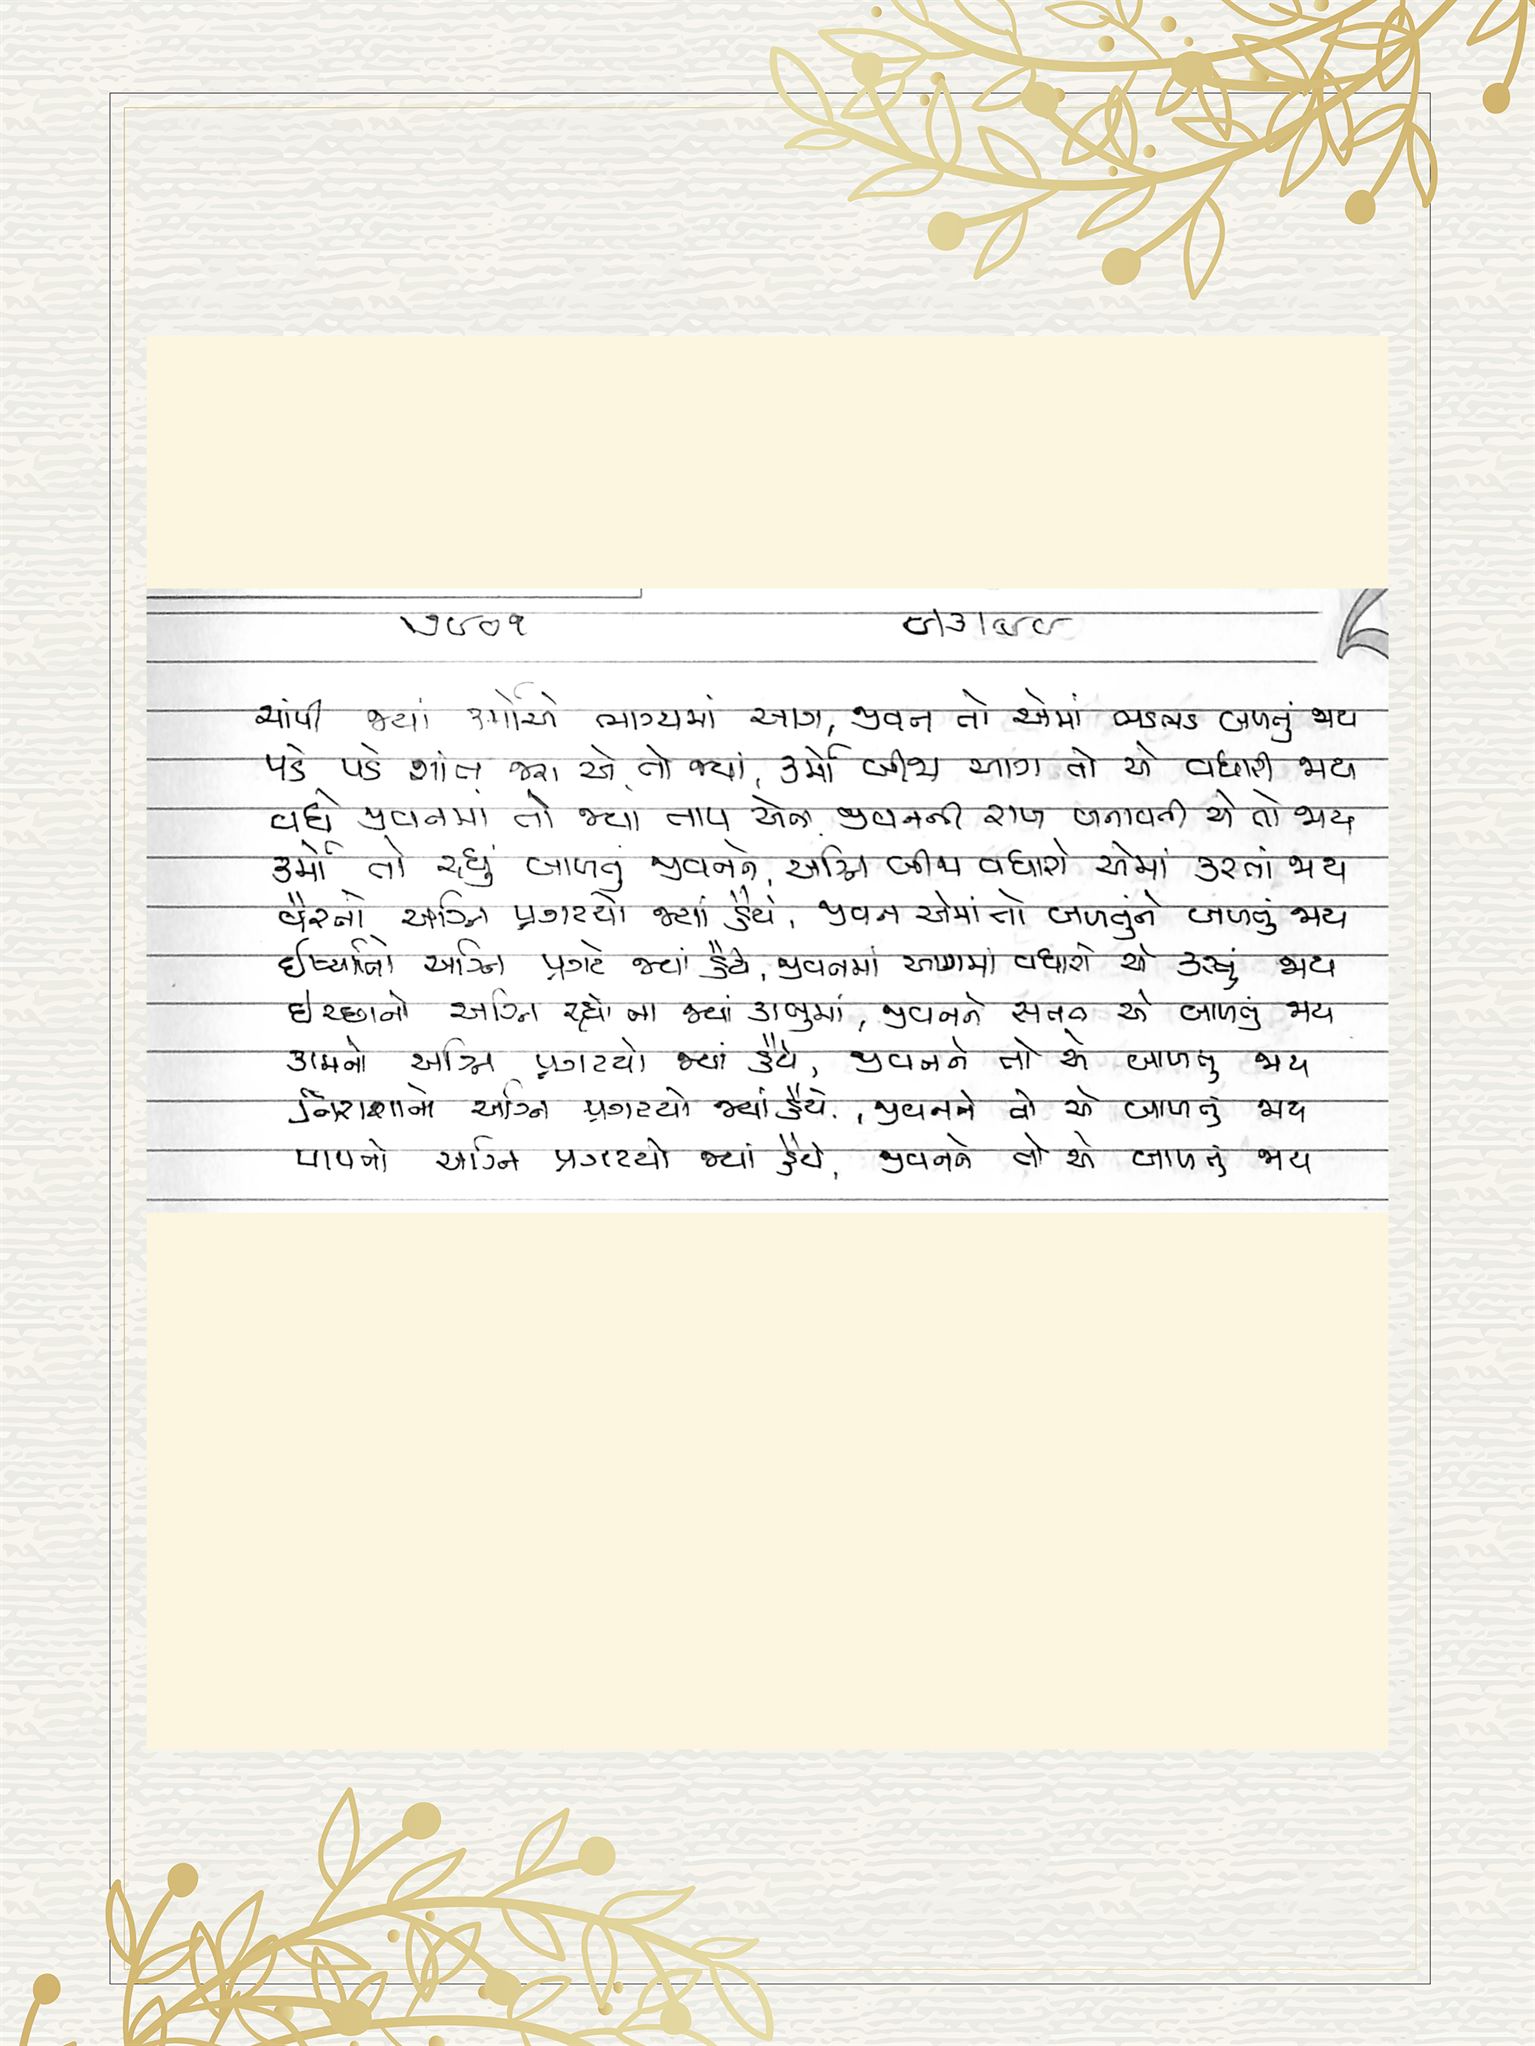 ૭૯૦૧ ૯/૩/૯૯
ચાંપી જ્યાં કર્મોએ ભાગ્યમાં આગ, જીવન તો એમાં ભડભડ બળતું જાય
પડે પડે શાંત જરા એ તો જ્યાં, કર્મો બીજી આગ તો એ વધારી જાય
વધે જીવનમાં તો જ્યાં તાપ એના, જીવનની રાખ બનાવતી એ તો જાય
કર્મો તો રહ્યું બાળતું જીવનને, અગ્નિ બીજા વધારો એમાં કરતાં જાય
વૈરનો અગ્નિ પ્રગટયો જ્યાં હૈયે, જીવન એમાં તો બળતુંને બળતું જાય
ઈર્ષ્યાનો અગ્નિ પ્રગટે જ્યાં હૈયે, જીવનમાં આગમાં વધારો એ કરતું જાય
ઇચ્છાનો અગ્નિ રહ્યો ના જ્યાં કાબુમાં, જીવનને સતત એ બાળતું જાય
કામનો અગ્નિ પ્રગટયો જ્યાં હૈયે, જીવનને તો એ બાળતું જાય
નિરાશાનો અગ્નિ પ્રગટયો જ્યાં હૈયે, જીવનને તો એ બાળતું જાય
પાપનો અગ્નિ પ્રગટયો જ્યાં હૈયે, જીવનને તો એ બાળતું જાય